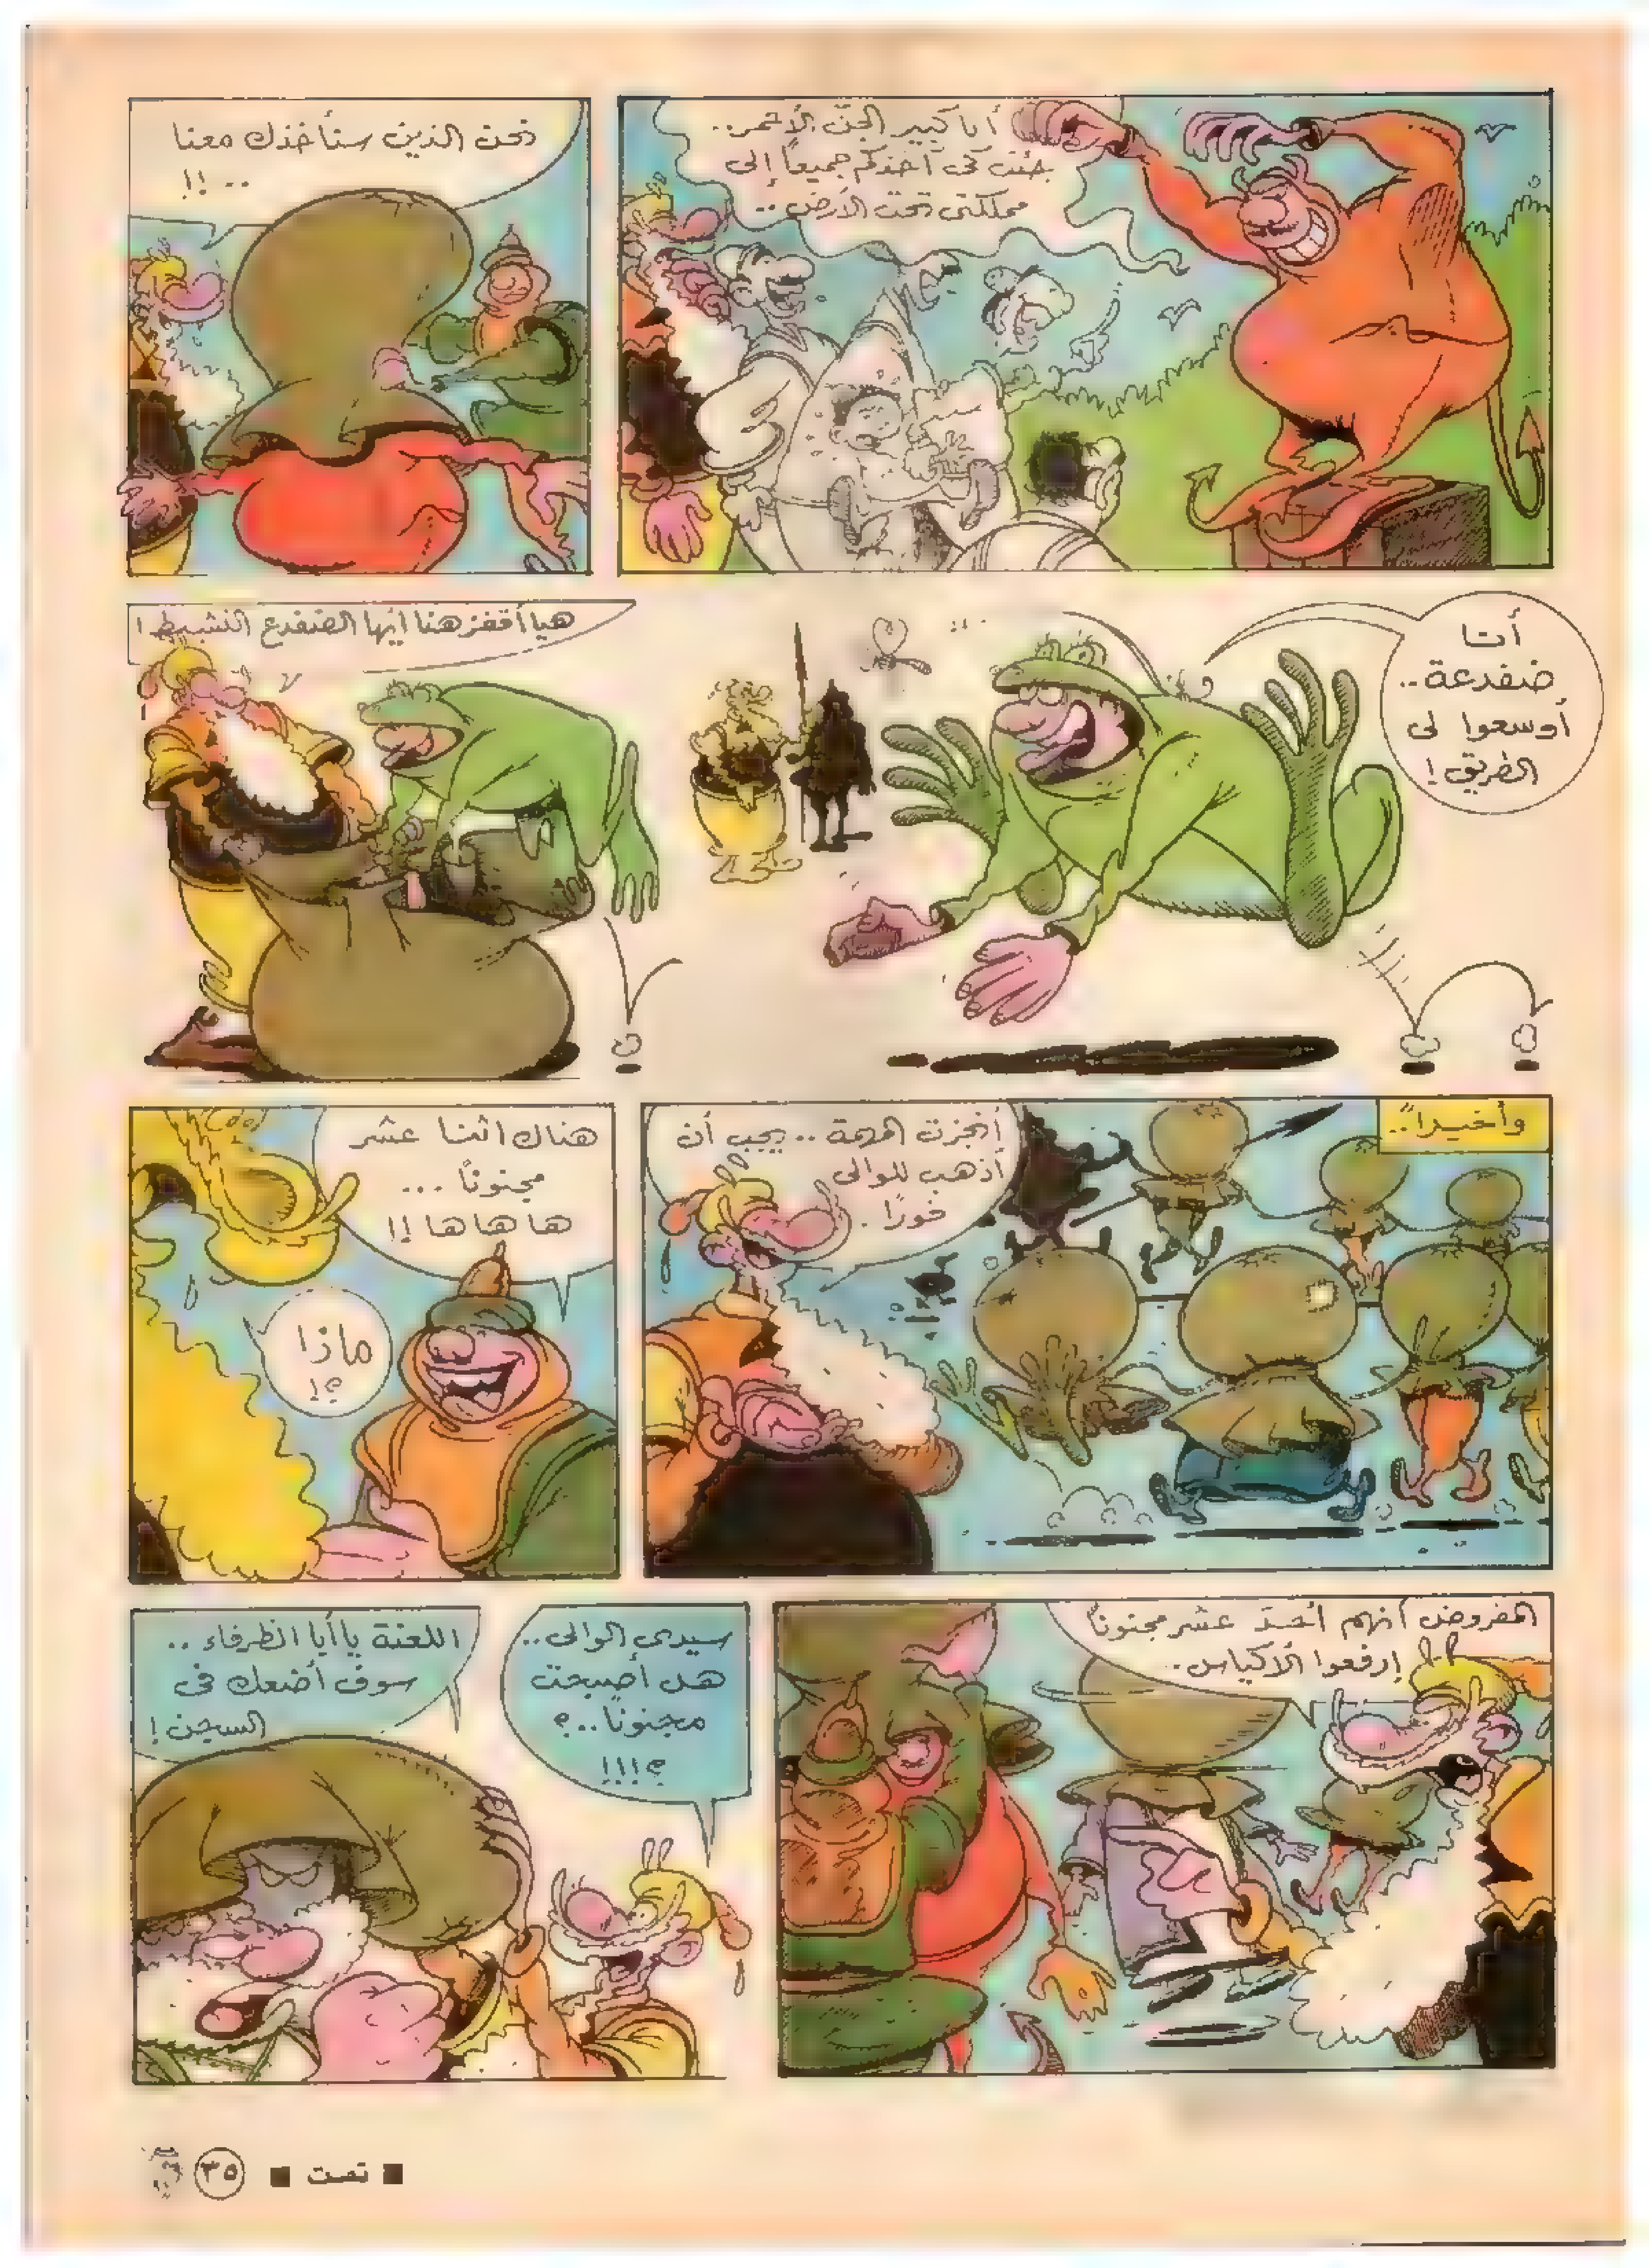 أنا كبير الجنّ الأحمر..
جئت كى آخذكم جميعاً إلى
مملكتى تحت الأرض..
نحن الذين سنأخذك معنا
..!!
أنا
ضفدعة..
أوسعوا لى
الطريق!
هيا أقفز هنا أيها الضفدع النشيط!
وأخيراً..
أنجزت المهمة.. يجب أن
أذهب للوالى
فورًا.
هناك اثنا عشر
مجنونًا...
ها ها ها !!
ماذا
؟!
المفروض أنهم أحد عشر مجنونًا
إرفعوا الأكياس.
سيدى الوالى..
هل أصبحت
مجنونًا..؟
؟!!!
اللعنة يا أبا الظرفاء..
سوف أضعك فى
السجن!
■ تمت ■
٣٥